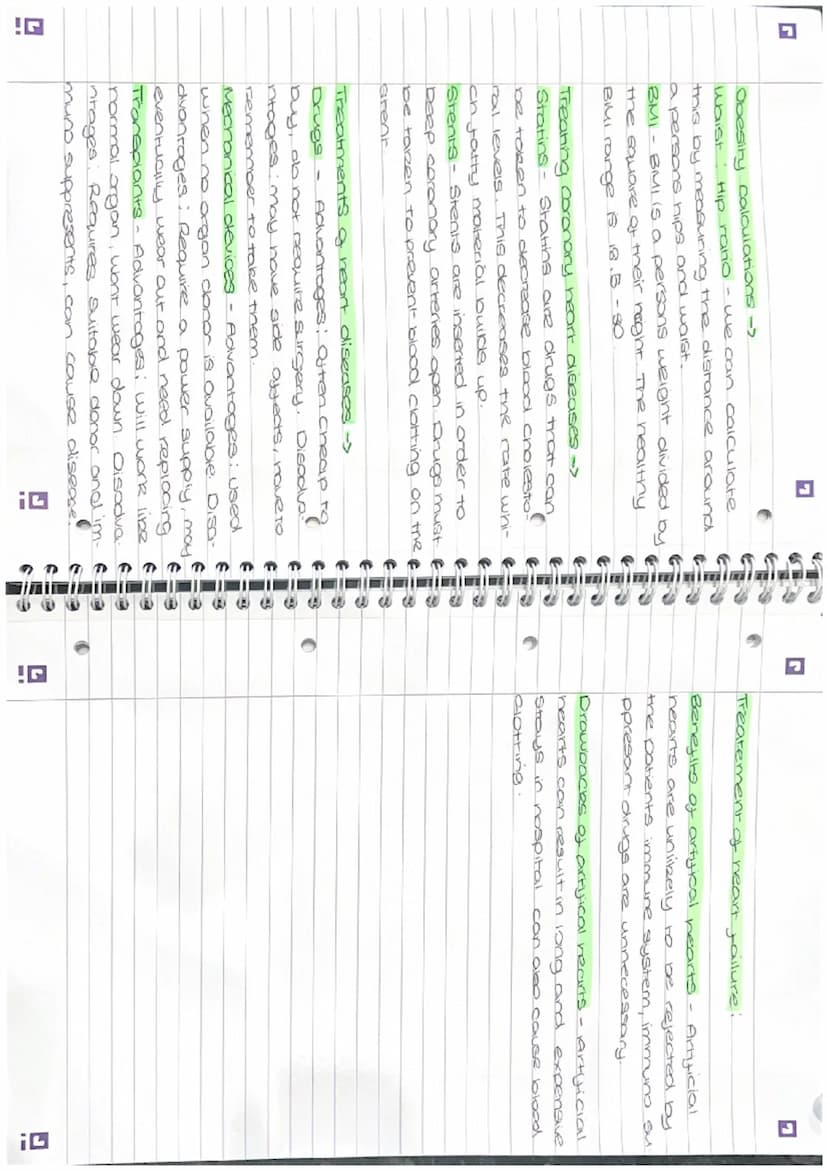 Obesity calculations →
Waist : Hip ratio - We can calculate
this by measuring the distance around
a persons hips and waist.
BMI - BMI is a persons weight divided by
the square of their height. The healthy
BMI range is 18.5 - 30
Treating coronary heart diseases →
Statins - Statins are drugs that can
be taken to decrease blood cholesto-
ral levels. This decreases the rate whi-
ch fatty material builds up.
Stents - Stents are inserted in order to
keep coronary arteries open. Drugs must
be taken to prevent blood clotting on the
stent.
Treatments of heart diseases →
Drugs - Advantages: Often cheap to
buy, do not require surgery. Disadva-
ntages: may have side affects, have to
remember to take them.
Mechanical devices - Advantages: used
when no organ donor is available. Disa-
dvantages: Require a power supply, may
eventurilly wear out and need replacing
Transplants - Advantages: will work like
normal organ, wont wear down. Disadva-
ntages: Requires suitable donor and im-
muno suppresents, can cause disease.
Treatement of heart failure:
Benefits of artifical hearts - Artificial
hearts are unlikely to be rejected by
the patients immune system, immuno su
ppresant drugs are unnecessary.
Drawbacks of artifical hearts - Artificial
hearts can result in long and expensive
stays in hospital can also cause blood
clotting.